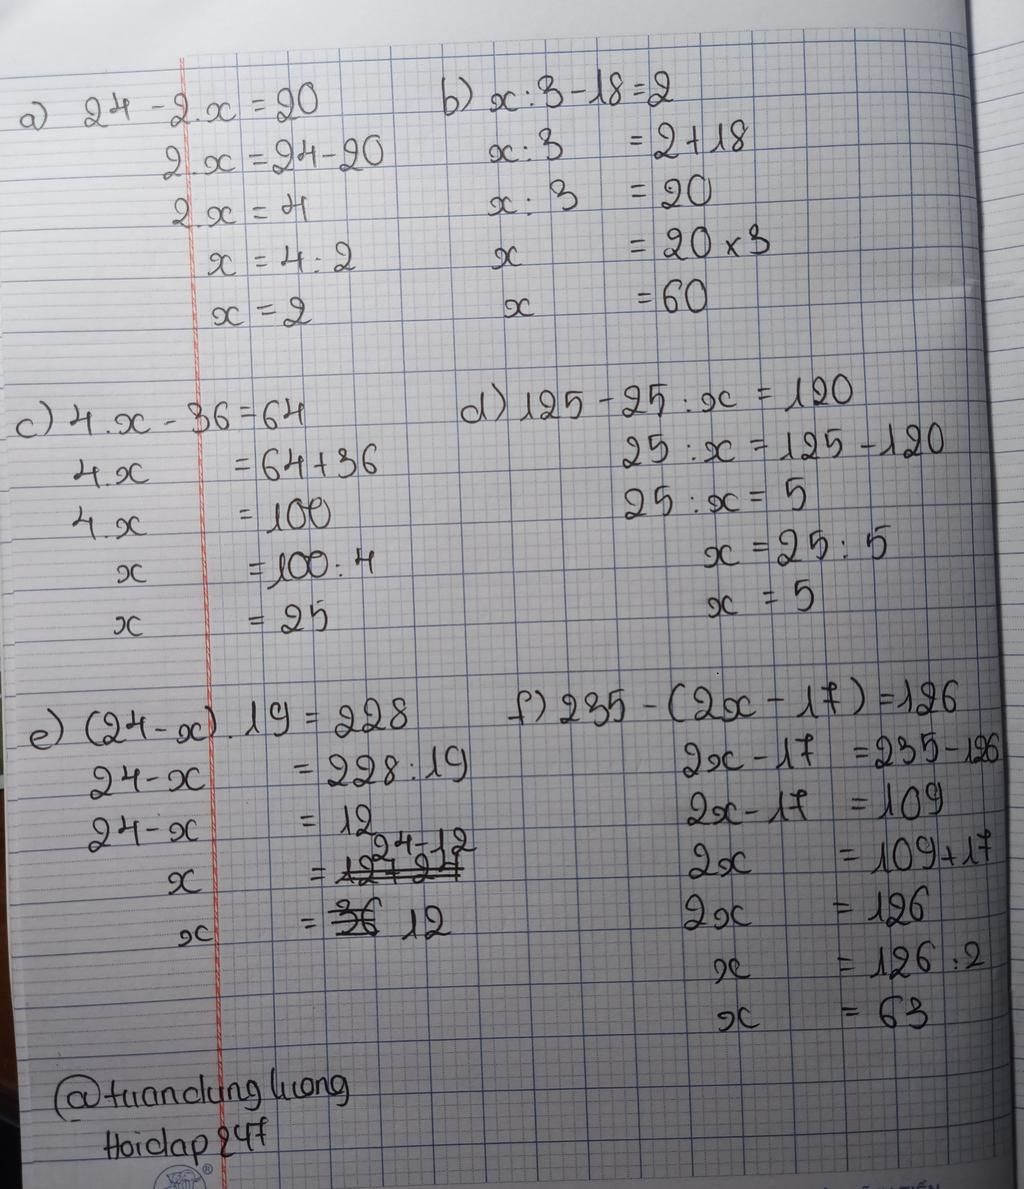 a) 24 - 2.x = 20
2.x = 24 - 20
2.x = 4
x = 4 : 2
x = 2
b) x : 3 - 18 = 2
x : 3 = 2 + 18
x : 3 = 20
x = 20 × 3
x = 60
c) 4.x - 36 = 64
4.x = 64 + 36
4.x = 100
x = 100 : 4
x = 25
d) 125 - 25 : x = 120
25 : x = 125 - 120
25 : x = 5
x = 25 : 5
x = 5
e) (24 - x) . 19 = 228
24 - x = 228 : 19
24 - x = 12
x = 24 - 12
x = 36 12
f) 235 - (2x - 17) = 126
2x - 17 = 235 - 126
2x - 17 = 109
2x = 109 + 17
2x = 126
x = 126 : 2
x = 63
@tuandung luong
Hoidap247